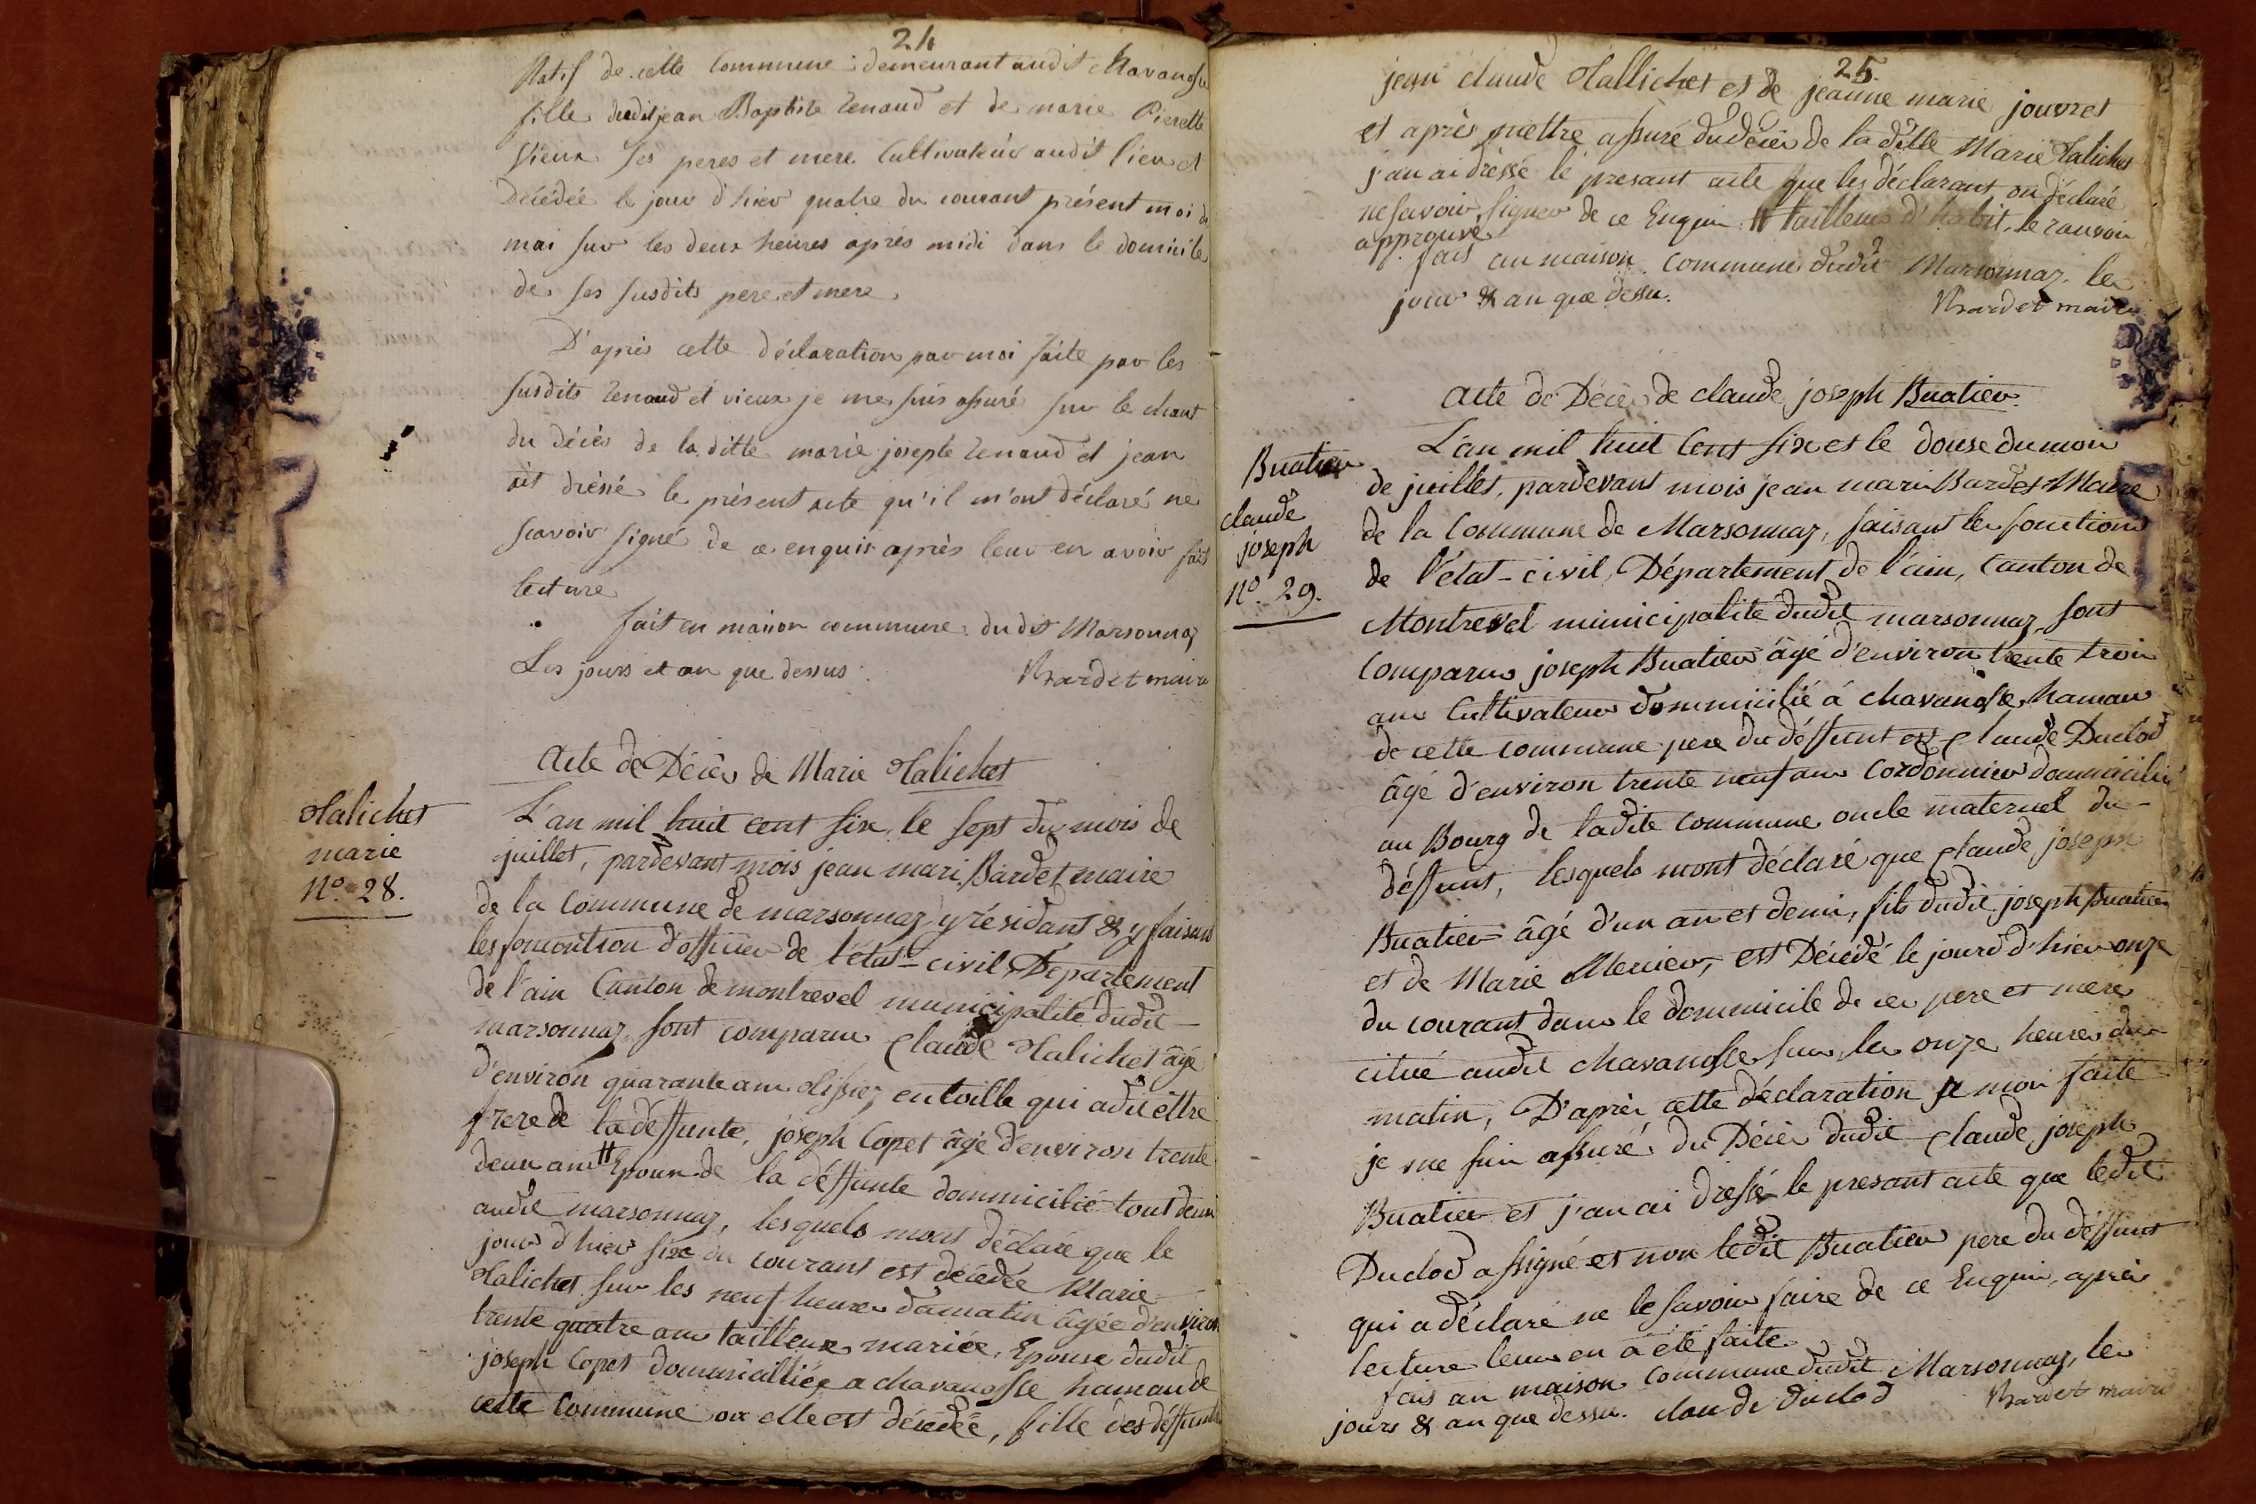 24
Natif de cette Commune demeurant audit chavanosse
fille dudit jean Baptiste Renaud et de marie Pierette
vieux ses peres et mere Cultivateur audit lieu et
Décédée le jour d'hier quatre du courant présent moi de
mai sur les deux heures après midi dans le domicile
de ses susdits pere et mere.
D'après cette déclaration par moi faite par les
susdits Renaud et vieux je me suis assuré sur le chant
du décès de la ditte marie josepte Renaud et jean
ait dréssé le présent acte qu'il m'ont déclaré ne
scavoir signé de ce enquis après leur en avoir fait
lecture
fait en maison commune dudit Marsonnaz
Les jours et an que dessus.
Bardet maire
Acte de Décès de Marie Halichet
Halichet
marie
N.º 28.
L'an mil huit cent six, le sept du mois de
juillet, pardevant mois jean mari Bardet maire
de la Commune de marsonnaz y résidant & y faisant
les fomontion d'officier de l'état-civil Département
de l'ain Canton de montrevel municipalité dudit
marsonnaz sont comparu Claude Halichet âgé
d'environ quarante ans tissiez en toille qui a dit ettre
frere de la deffunte, joseph Copet âgé d'environ trente
deux ans # Epoux de la déffunte dommicilié tout deux
audit marsonnaz, lesquels mont déclaré que le
jour d'hier six du courant est décédée Marie
Halichet sur les neuf heures du matin âgée d'environ
trente quatre ans tailleuse mariée, Epouse dudit
joseph Copet dommicilliée a chavanosse hamau de
cette Commune ou elle est décédée, fille des déffunts
25.
jean claude Hallichet et de jeanne marie jouvret
et après mettre assuré du décès de la ditte Marie Halichet
j'an ai dressé le presant acte que les déclarant on déclaré
ne savoir signer de ce Enquin # tailleur d'habit, le ranvoin
approuvé
fais au maison commune dudit Marsonnaz. les
jour & an que dessu.
Bardet maire
acte de Décès de claude joseph Buatier.
Buatier
claude
joseph
N.º 29.
L'an mil huit Cent six et le douse du mois
de juillet, pardevant mois jean mari Bardet Maire
de la Commune de Marsonnaz, faisant les fonctions
de l'état-civil, Département de l'ain, Canton de
Montrevel municipalité dudit marsonnaz sont
Comparu joseph Buatier âgé d'environ trente trois
ans Cultivateur dommicilié á chavanosse hamau
de cette commune pere du déffunt et Claude Duclod
âgé d'environ trente neuf ans Cordonnier dommicilié
au Bourg de ladite commune oncle maternel du
déffunt, lesquels mont déclaré que Claude joseph
Buatier âgé d'un an et demi, fils dudit joseph Buatier
et de Marie Mercier, est Décédé le jourd'hier onze
du courant dans le dommicile de ces pere et mere
citué audit chavanosse sur les onze heures du
matin, D'après cette déclaration a moi faite
je me suis assuré du Décès dudit Claude joseph
Buatier et j'an ai dressé le presant acte que ledit
Duclod a signé et non ledit Buatier pere du déffunt
qui a déclaré ne le savoir faire de ce Enquin, après
lecture leur en a été faite.
fais an maison Commune dudit Marsonnaz, les
jours & an que dessu. claude duclod
Bardet maire